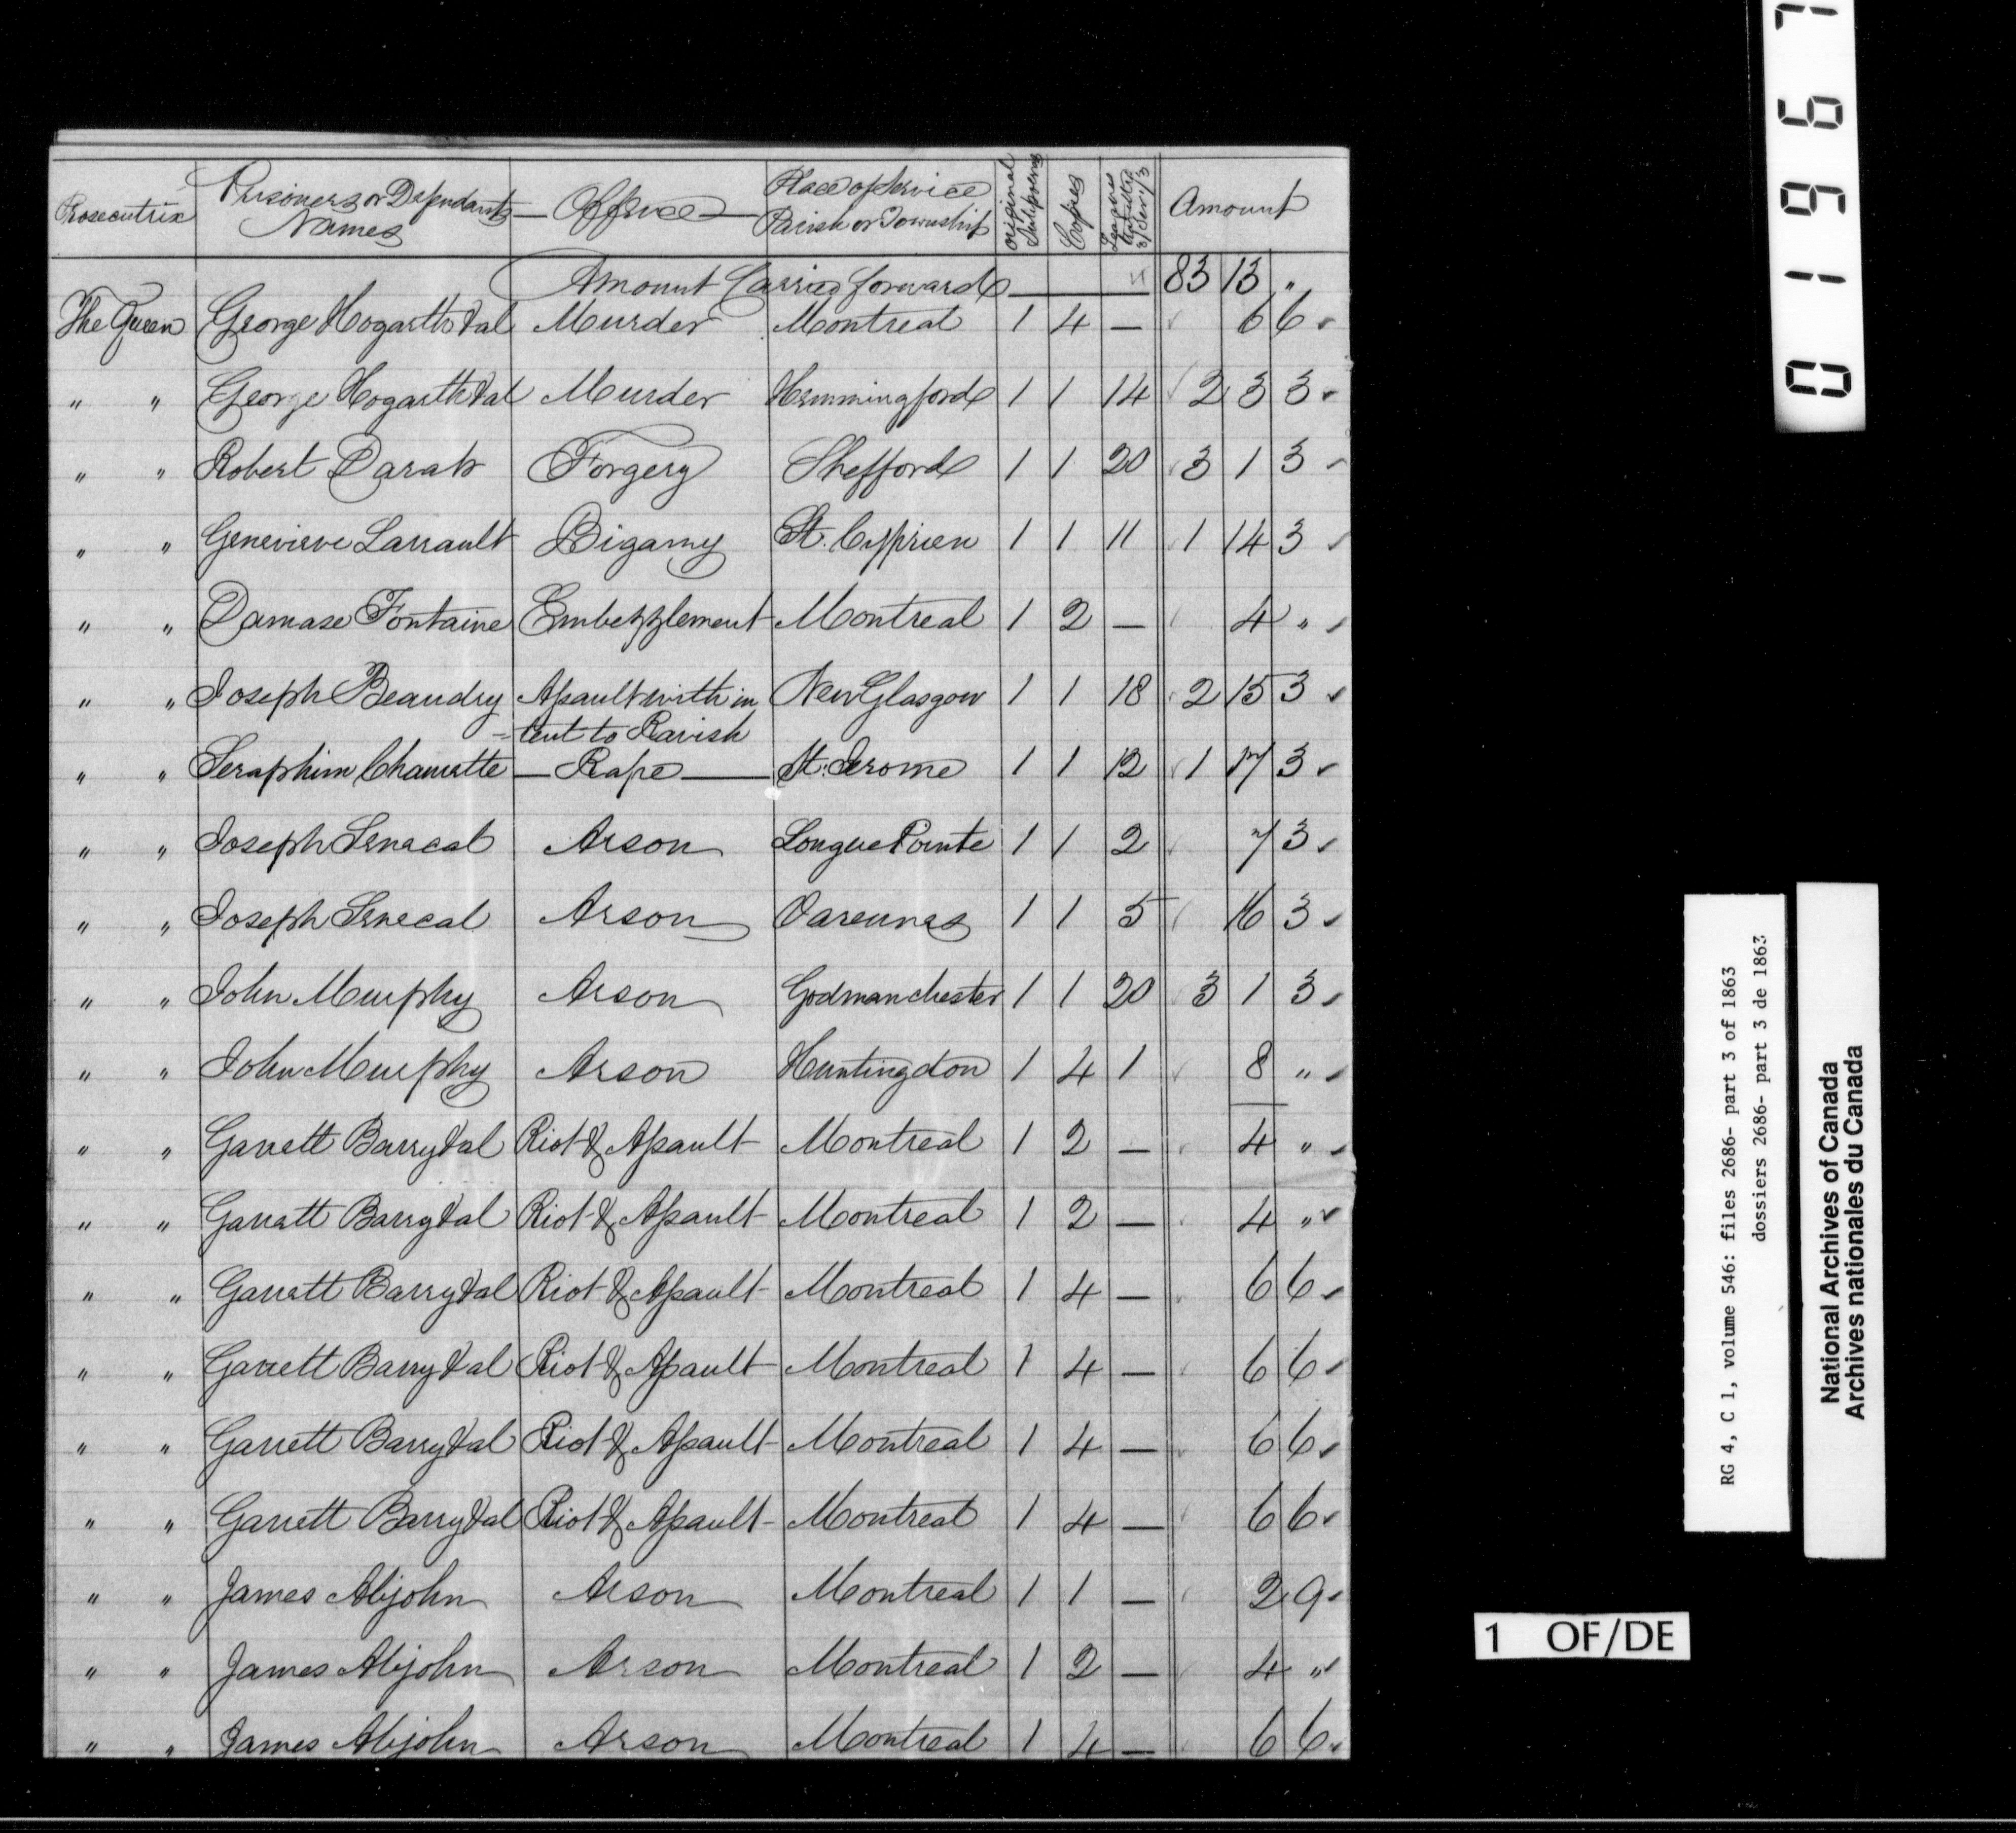 Prosecutrix Prisoners or Defendants Names Offence Place of Service Parish or Township Original Subpoenas Copies Leagues Travelled Amount
Amount Carried forward 83 13 "
The Queen George Hogarth & al Murder Montreal 1 4 — 6 6
" " George Hogarth & al Murder Hemmingford 1 1 14 2 3 3
" " Robert Darah Forgery Shefford 1 1 20 3 1 3
" " Genevieve Larrault Bigamy St. Cyprien 1 1 11 1 14 3
" " Damase Fontaine Embezzlement Montreal 1 2 — 4 "
" " Joseph Beaudry Assault with in New Glasgow 1 1 18 2 15 3
-tent to Ravish
" " Seraphim Charrette — Rape — St. Jerome 1 1 12 1 17 3
" " Joseph Senecal Arson Longue Pointe 1 1 2 7 3
" " Joseph Senecal Arson Varennes 1 1 5 16 3
" " John Murphy Arson Godmanchester 1 1 20 3 1 3
" " John Murphy Arson Huntingdon 1 4 1 8 "
" " Garrett Barry & al Riot & Assault Montreal 1 2 — 4 "
" " Garrett Barry & al Riot & Assault Montreal 1 2 — 4 "
" " Garrett Barry & al Riot & Assault Montreal 1 4 — 6 6
" " Garrett Barry & al Riot & Assault Montreal 1 4 — 6 6
" " Garrett Barry & al Riot & Assault Montreal 1 4 — 6 6
" " Garrett Barry & al Riot & Assault Montreal 1 4 — 6 6
" " James Abijohn Arson Montreal 1 1 — 2 9
" " James Abijohn Arson Montreal 1 2 — 4 "
" " James Abijohn Arson Montreal 1 4 — 6 6
01967
RG 4, C 1, volume 546: files 2686- part 3 of 1863
dossiers 2686- part 3 de 1863
National Archives of Canada
Archives nationales du Canada
1 OF/DE